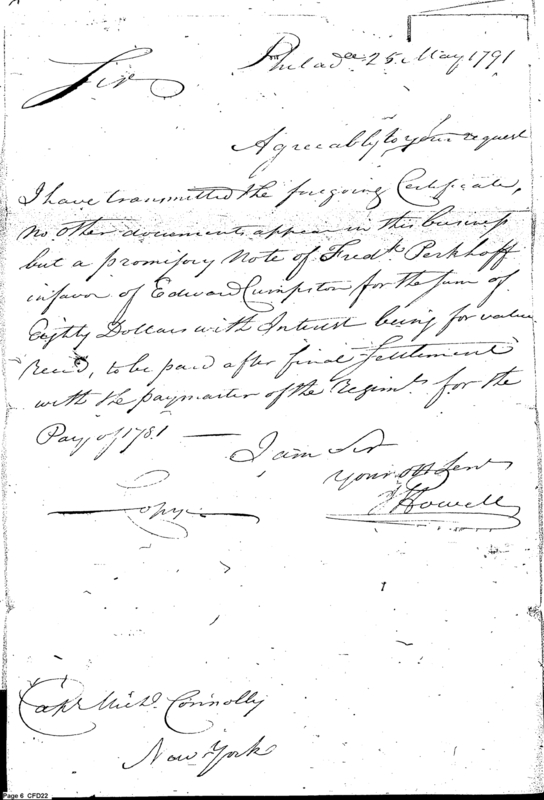 Philada 25 May 1791
Sir
Agreeably to your request
I have transmitted the foregoing Certificate,
no other documents appear in this business
but a promissory Note of Fredk. Perkhoff
in favor of Edward Cumpston for the sum of
Eighty Dollars with Interest being for value
Recd, to be paid after final Settlement
with the paymaster of the Regimt. for the
Pay of 1781 —
I am Sir
Your Obt Servt
J Howell
Copy
Capt Michl. Connolly
New York
Page 6 CFD22